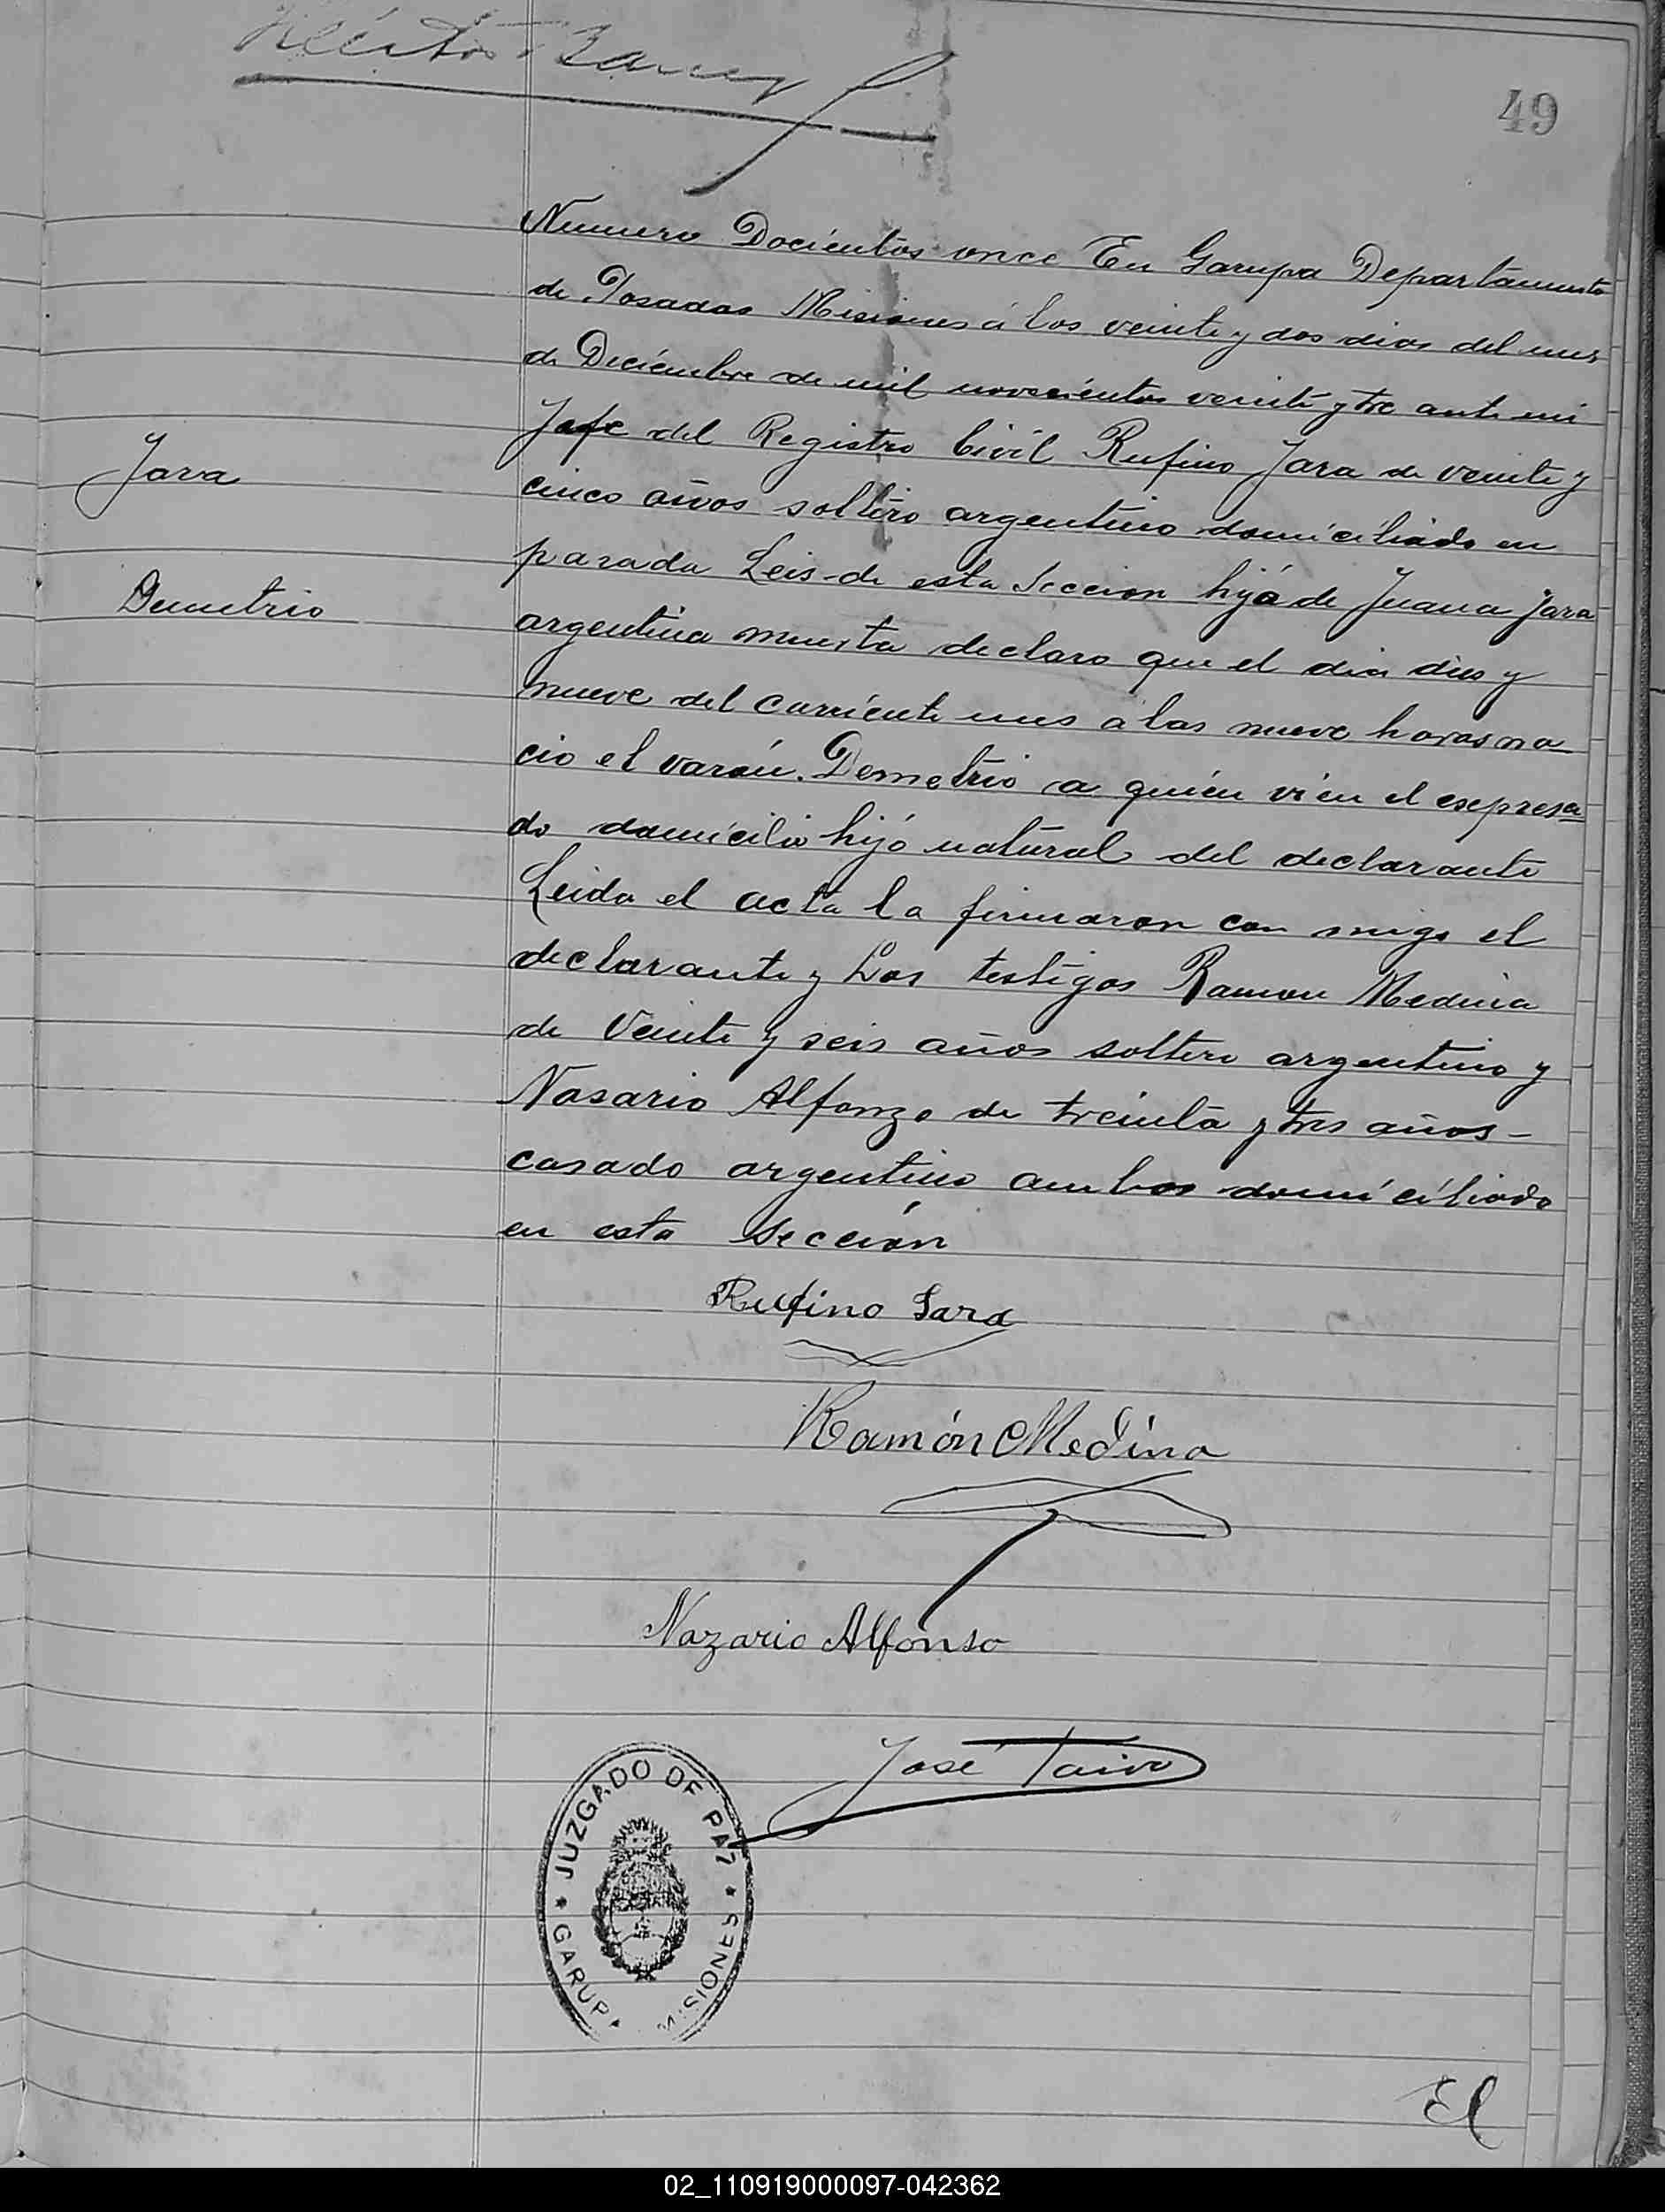 49
Numero Docientos once En Garupa Departamento
de Posadas Misiones á los veinte y dos dias del mes
de Deciembre de mil novecientos veinte y tre ante mi
Jefe del Registro Civil Rufino Jara de veinte y
Jara
cinco años soltero argentino domiciliado en
parada Leis de esta Seccion hijo de Juana Jara
Demetrio
argentina muerta declaro que el dia dies y
nueve del corriente mes a las nueve horas na
cio el varón. Demetrio a quién vi en el expresa
do domicilio hijo natural del declarante
Leida el acta la firmaron con migo el
declarante y Los testigos Ramon Medina
de Veinte y seis años soltero argentino y
Nasario Alfonzo de treinta y tres años -
casado argentino ambos domiciliado
en esta Sección
Rufino Jara
Ramón Medina
Nazario Alfonso
José
JUZGADO DE PAZ
GARUPA MISIONES
El
02_110919000097-042362